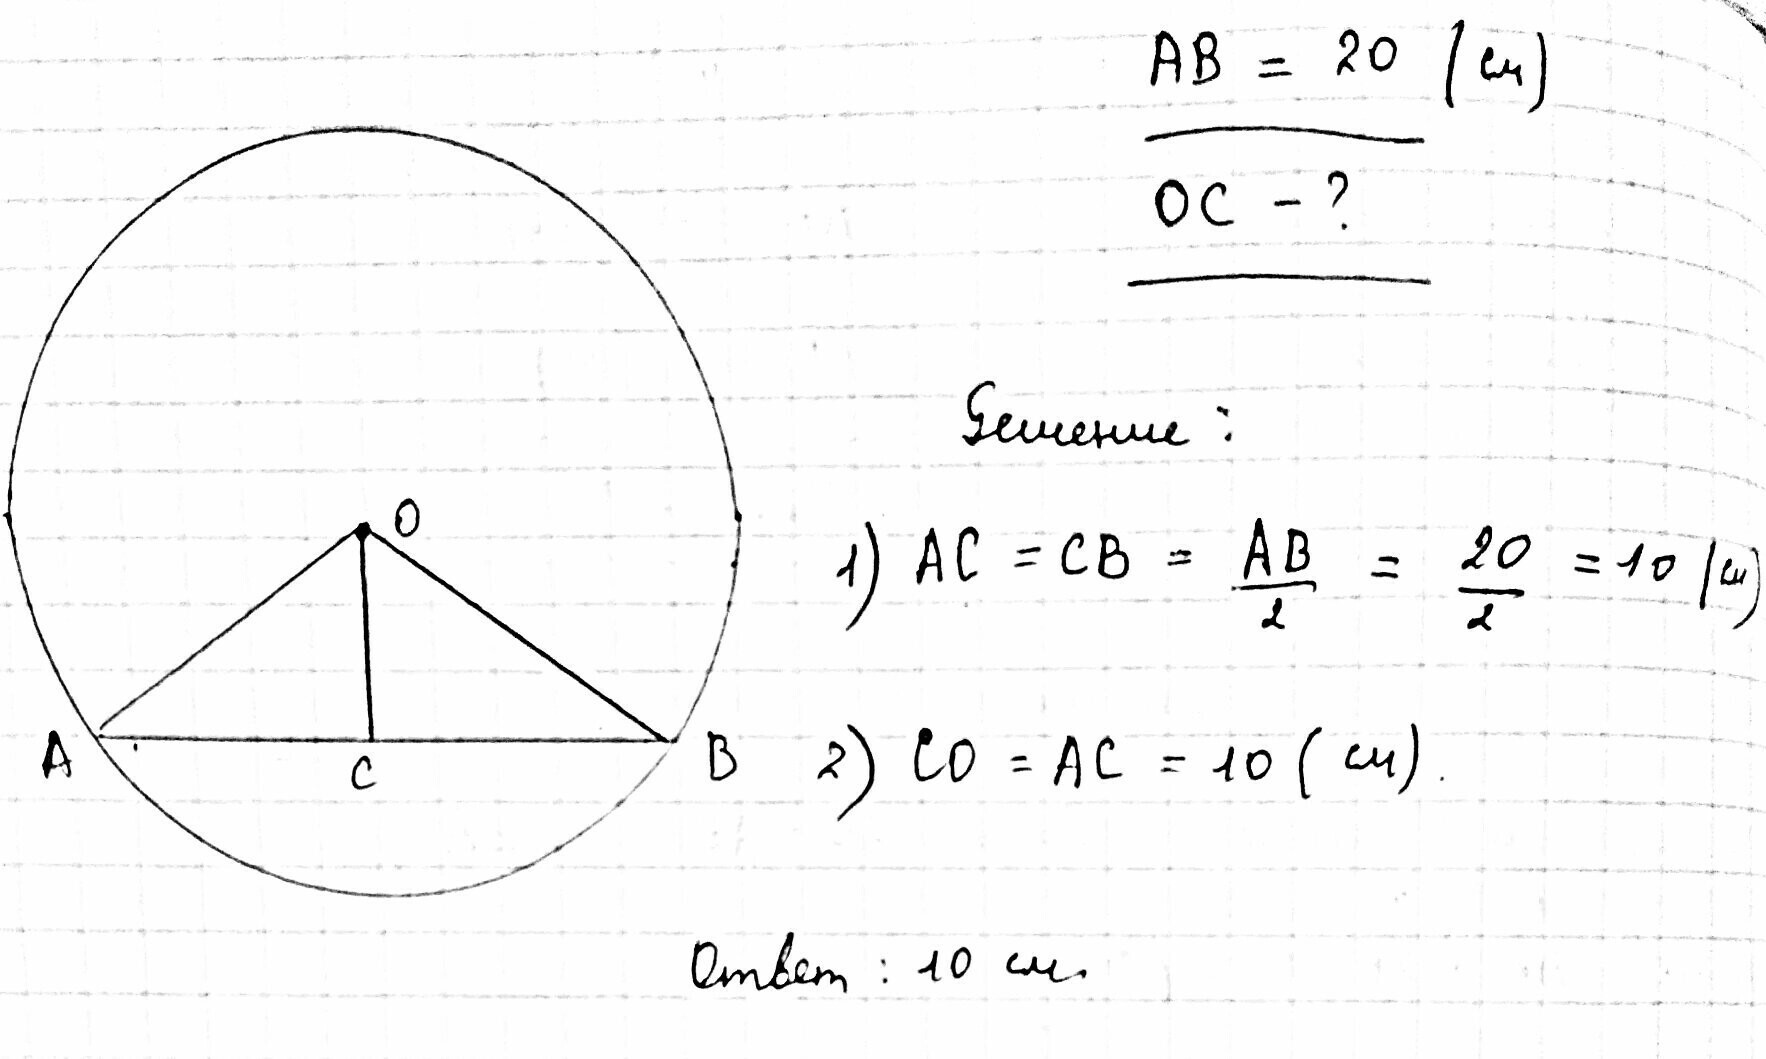 AB = 20 (см)
OC - ?
Решение :
1) AC = CB = AB/2 = 20/2 = 10 (см)
O
A
C
B
2) CO = AC = 10 (см).
Ответ : 10 см.